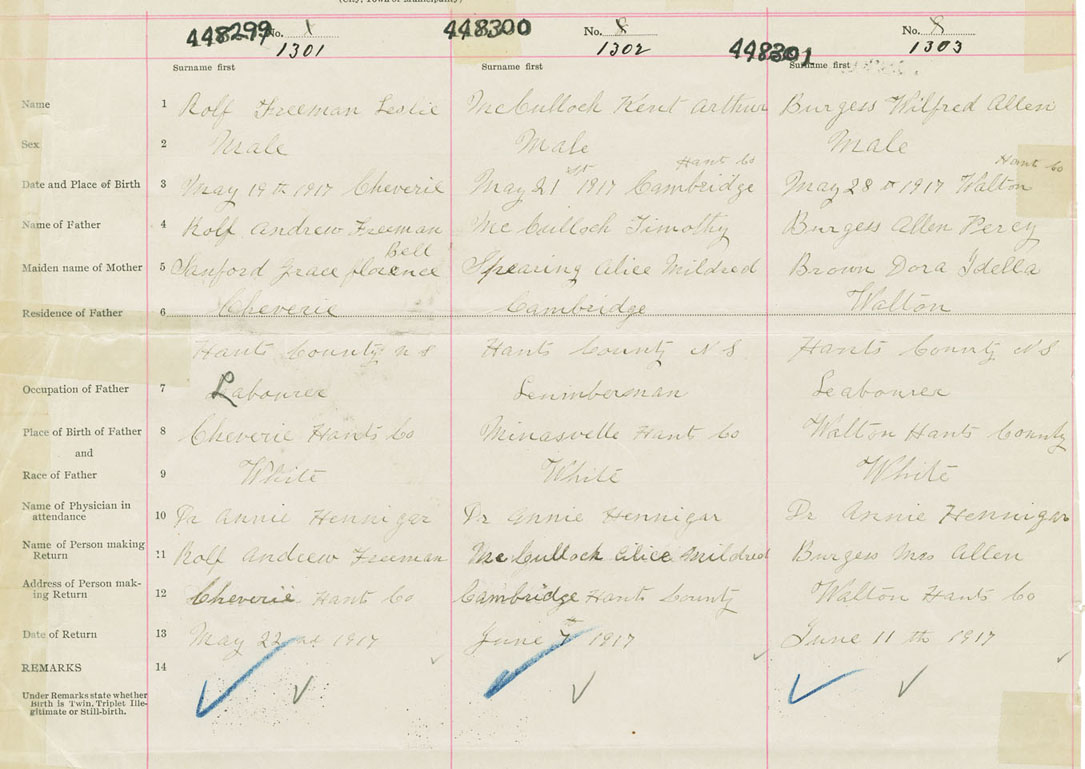 (City, Town or Municipality)
448299 No. 1 448300 No. 8 No. 8
1301 1302 448301 1303
Surname first Surname first Surname first
Name 1 Rolf Freeman Leslie McCullock Kent Arthur Burgess Wilfred Allen
Sex 2 Male Male Male
Hant Co Hant Co
Date and Place of Birth 3 May 19th 1917 Cheverie May 21st 1917 Cambridge May 28th 1917 Walton
Name of Father 4 Rolf Andrew Freeman McCullock Timothy Burgess Allen Percy
Bell
Maiden name of Mother 5 Sanford Grace florence Spearing Alice Mildred Brown Dora Idella
Residence of Father 6 Cheverie Cambridge Walton
Hants County N S Hants County N S Hants County N S
Occupation of Father 7 Labourer Leumberman Leabourer
Place of Birth of Father 8 Cheverie Hants Co Minasvelle Hants Co Walton Hants County
and
Race of Father 9 White White White
Name of Physician in
attendance 10 Dr Annie Hennigar Dr Annie Hennigar Dr Annie Hennigar
Name of Person making
Return 11 Rolf Andrew Freeman McCullock Alice Mildred Burgess Mrs Allen
Address of Person mak-
ing Return 12 Cheverie Hants Co Cambridge Hants County Walton Hants Co
Date of Return 13 May 22 1917 June 7th 1917 June 11th 1917
REMARKS 14
Under Remarks state whether
Birth is Twin, Triplet Ille-
gitimate or Still-birth.